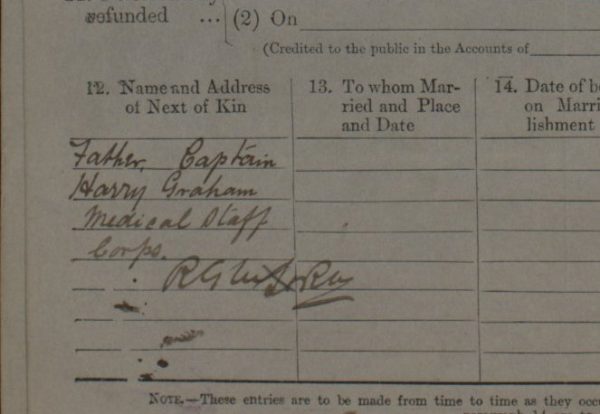 refunded ... (2) On
(Credited to the public in the Accounts of
12. Name and Address
of Next of Kin
13. To whom Mar-
ried and Place
and Date
14. Date of
on Marri
lishment
Father, Captain
Harry Graham
Medical Staff
Corps.
NOTE.—These entries are to be made from time to time as they occu